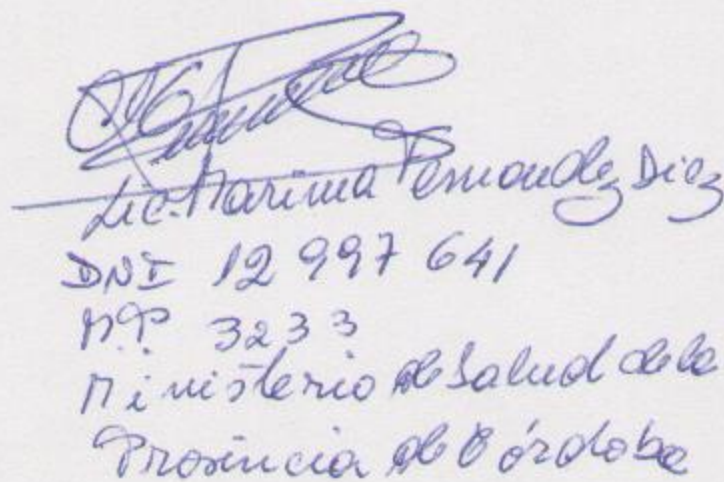 Lic. Marina Fernandez Diez
DNI 12 997 641
M.P 3233
Ministerio de Salud de la
Provincia de Córdoba